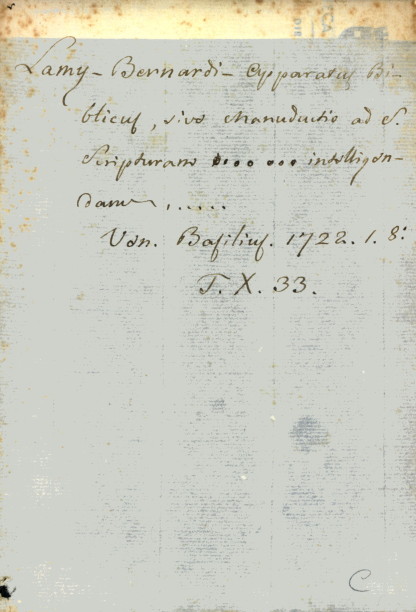 Lamy - Bernardi - Apparatus Bi-
blicus, sive Manuductio ad S.
Scripturam .... ... intelligen-
dam, .....
Ven. Basilius. 1722. 1. 8.
T. X. 33.
C